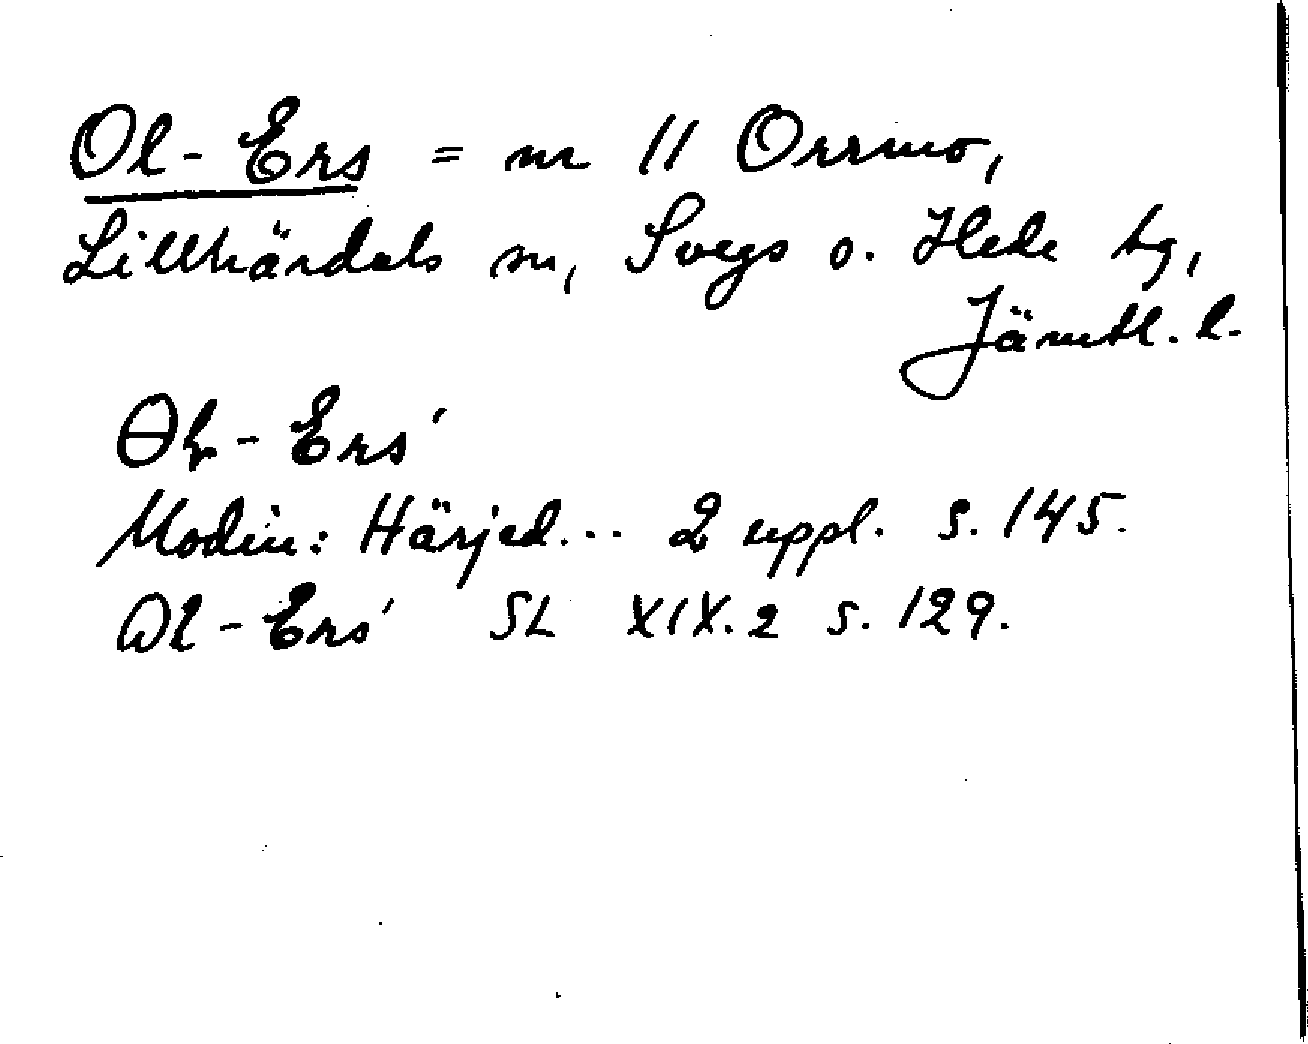 Ol-Ers = nr 11 Orrmo,
Lillhärdals sn, Svegs o. Hede tg,
Jämtl. l.
Ol-Ers'
Modin: Härjed... 2 uppl. s. 145.
Ol-Ers' SL XIX.2 s. 129.